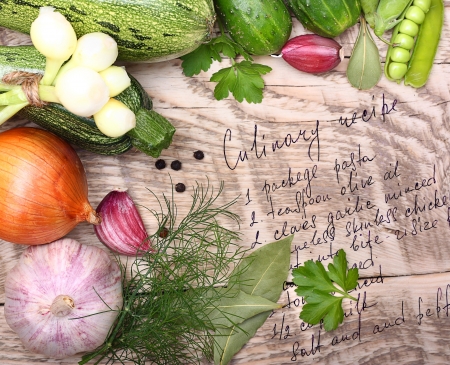 Culinary recipe
1 package pasta
2 teaspoon olive oil
2 claves garlic minced
skinless chicken
bite size
1/2 cup milk
salt and and peff